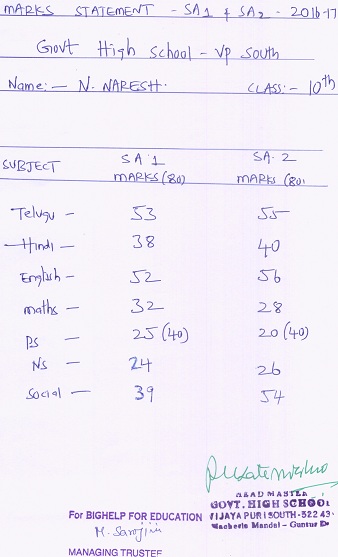 MARKS STATEMENT - SA1 & SA2 - 2016-17
Govt High School - VP South
Name:- N. NARESH. CLASS:- 10th
SUBJECT SA 1 MARKS (80) SA. 2 MARKS (80)
Telugu - 53 55
Hindi - 38 40
English - 52 56
maths - 32 28
PS - 25 (40) 20 (40)
NS - 24 26
Social - 39 54
HEAD MASTER
GOVT. HIGH SCHOOL
VIJAYA PURI SOUTH-522 43
Macherla Mandal - Guntur Dt
For BIGHELP FOR EDUCATION
M. Sarojini
MANAGING TRUSTEE